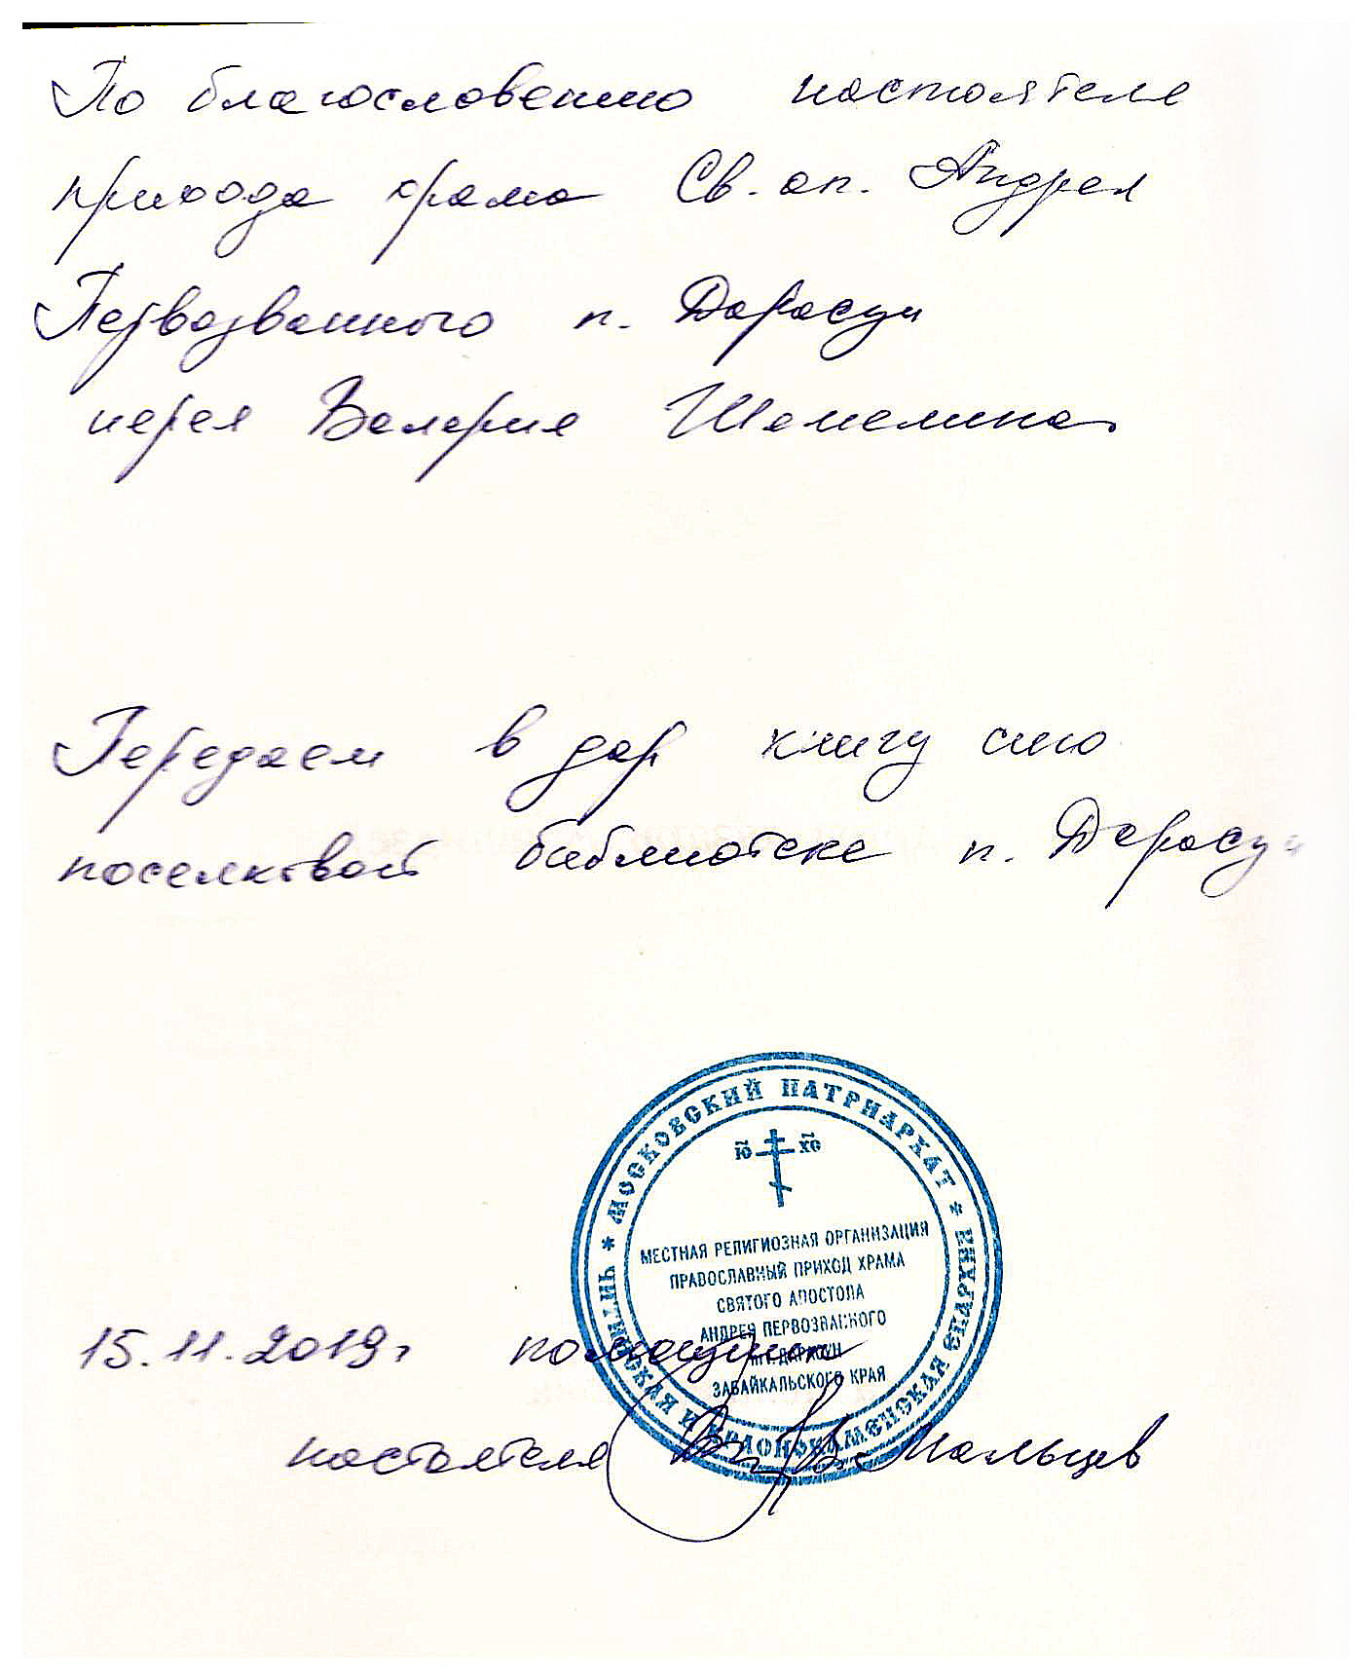 По благословению настоятеля
прихода храма Св. ап. Андрея
Первозванного п. Дарасун
иерея Валерия Шемелина
Передаем в дар книгу сию
поселковой библиотеке п. Дарасун
* МОСКОВСКИЙ ПАТРИАРХАТ *
ЧИТИНСКАЯ И КРАСНОКАМЕНСКАЯ ЕПАРХИЯ
МЕСТНАЯ РЕЛИГИОЗНАЯ ОРГАНИЗАЦИЯ
ПРАВОСЛАВНЫЙ ПРИХОД ХРАМА
СВЯТОГО АПОСТОЛА
АНДРЕЯ ПЕРВОЗВАННОГО
ПГТ. ДАРАСУН
ЗАБАЙКАЛЬСКОГО КРАЯ
15.11.2019г помощник
настоятеля В. Мальцев